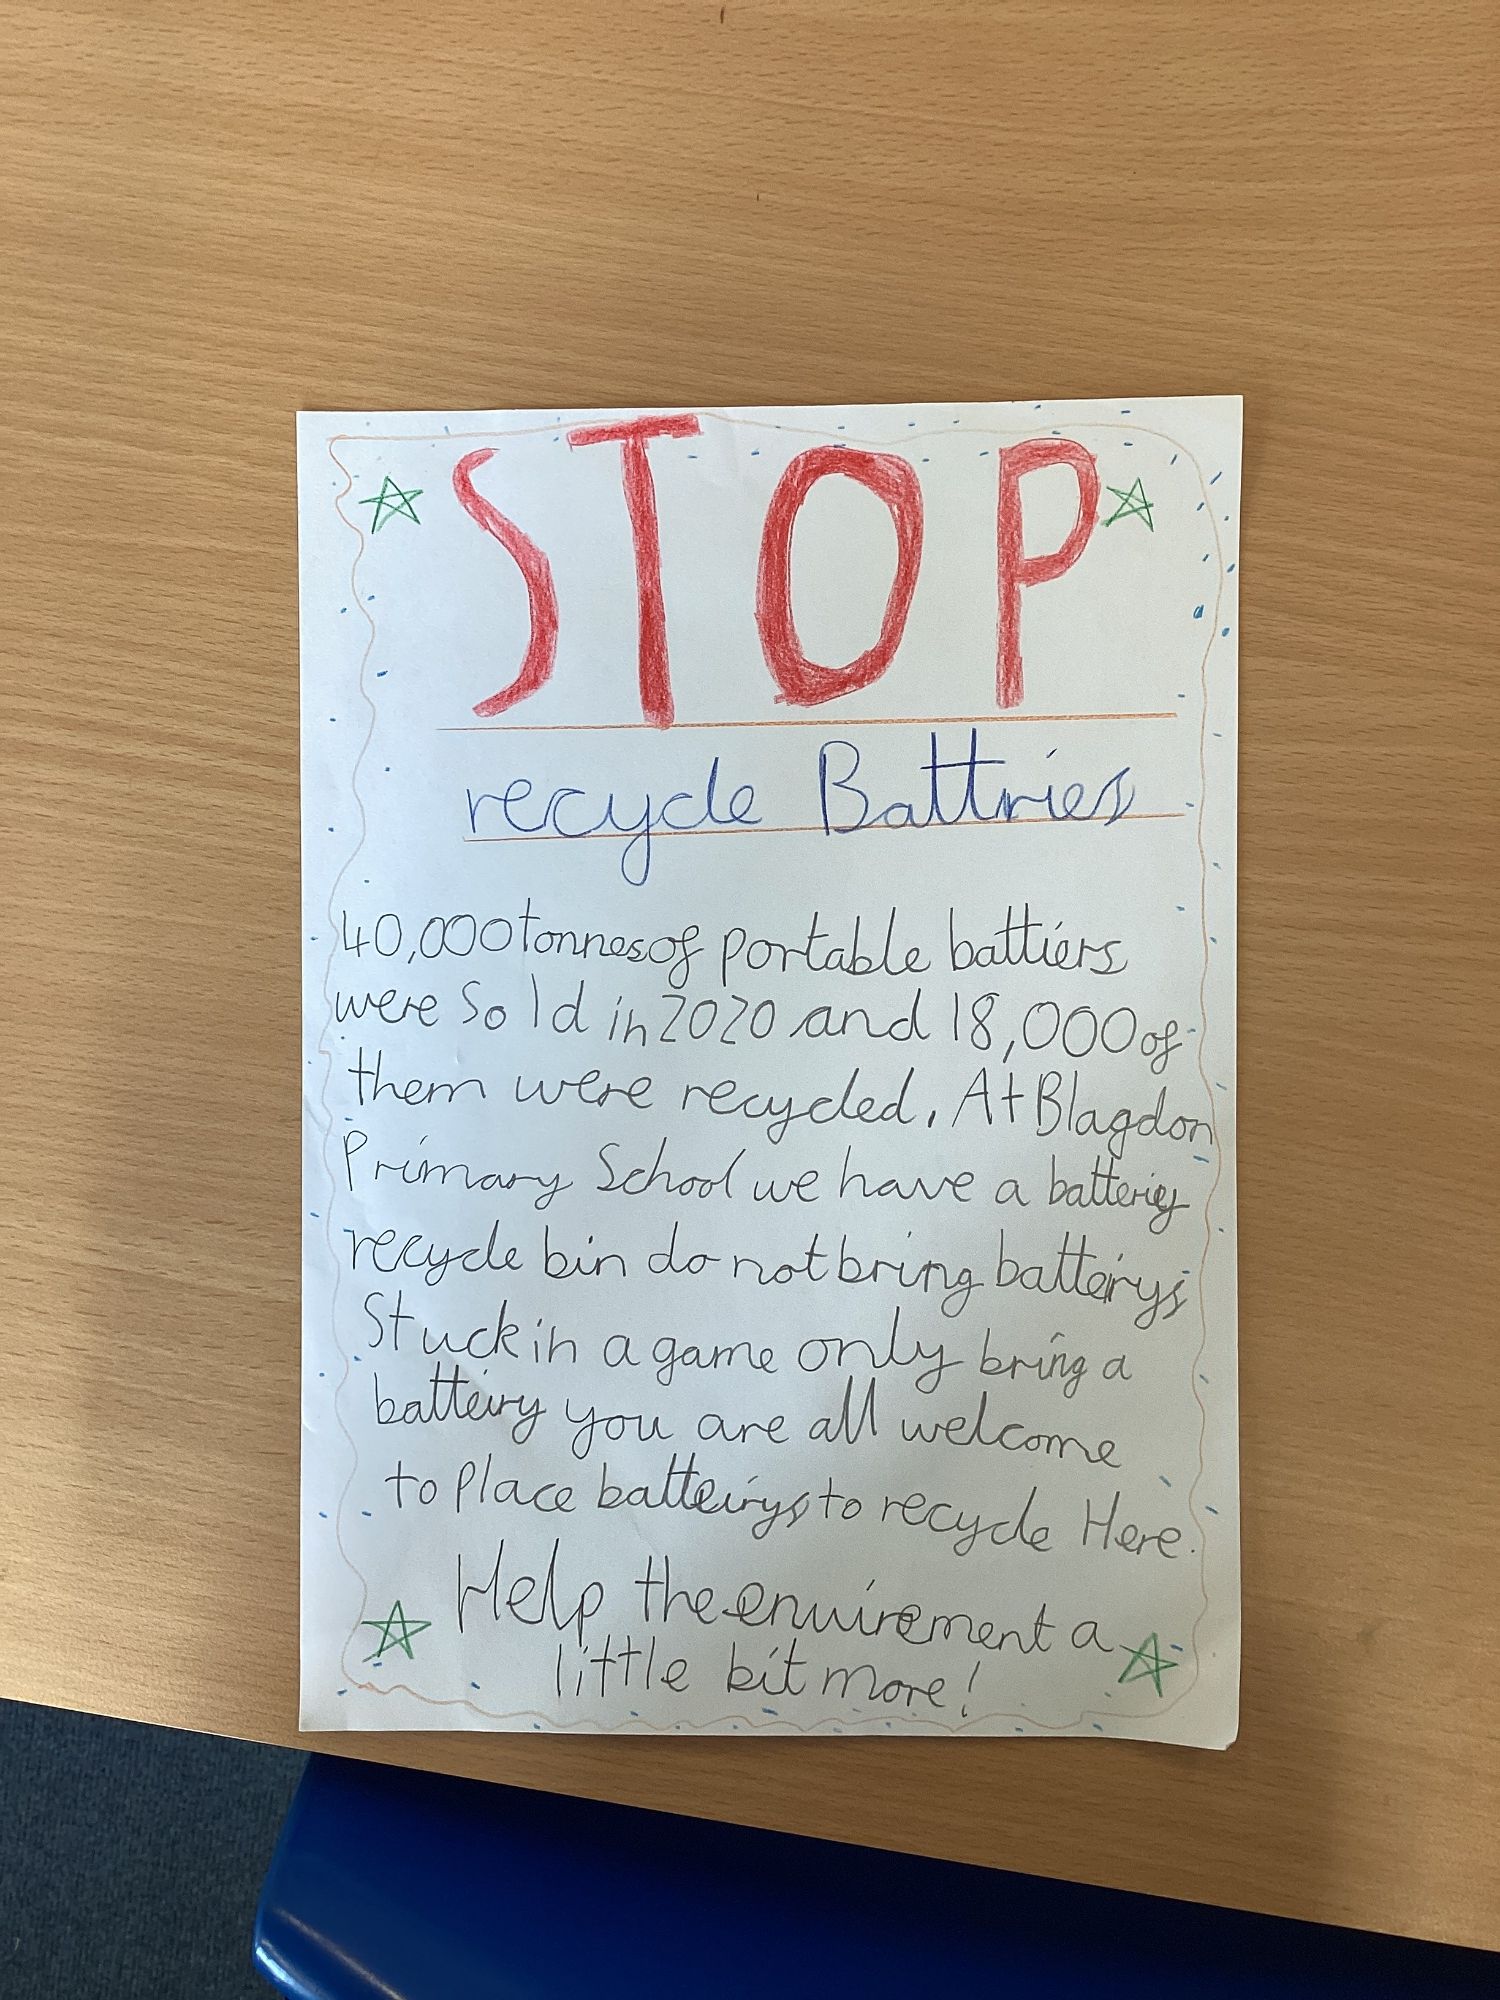 STOP
recycle Battries
40,000 tonnes of portable battiers
were sold in 2020 and 18,000 of
them were recycled. At Blagdon
Primary School we have a batteries
recycle bin do not bring batteirys
Stuck in a game only bring a
batteiry you are all welcome
to place batteirys to recycle Here.
Help the enuirement a
little bit more!